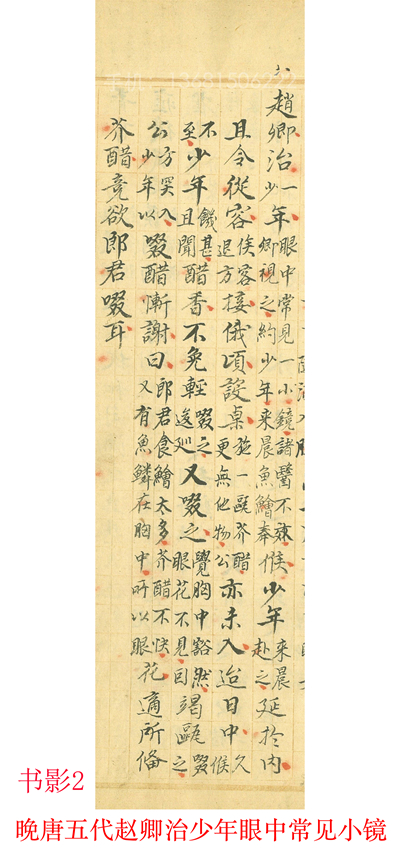 六
趙卿治少一年眼中常見一小鏡諸醫不療卿視之約少年來晨魚鱠奉候少年來晨赴之延於内
且令從容俟客退方接俄頃設桌施一甌芥醋更無他物公亦未入迨日中久候
不至少年饑甚且聞醋香不免輕啜之逡巡又啜之覺胸中豁然眼花不見因竭甌啜之
公方突入少年以啜醋慚謝曰郎君食鱠太多芥醋不快又有魚鱗在胸中所以眼花適所備
芥醋竟欲郎君啜耳
书影2
晚唐五代赵卿治少年眼中常见小镜